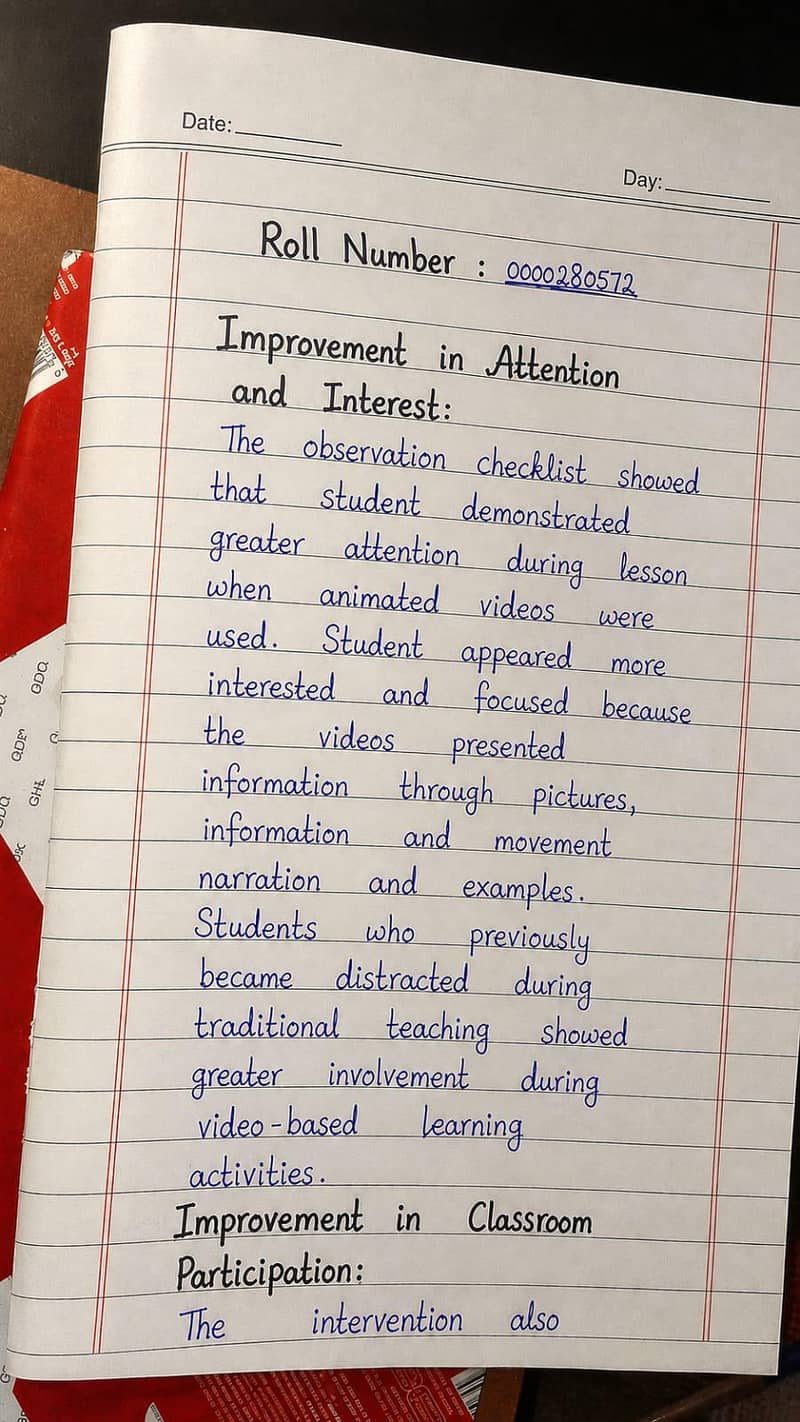 Date:
Day:
Roll Number : 0000280572
Improvement in Attention
and Interest:
The observation checklist showed
that student demonstrated
greater attention during lesson
when animated videos were
used. Student appeared more
interested and focused because
the videos presented
information through pictures,
information and movement
narration and examples.
Students who previously
became distracted during
traditional teaching showed
greater involvement during
video-based learning
activities.
Improvement in Classroom
Participation:
The intervention also